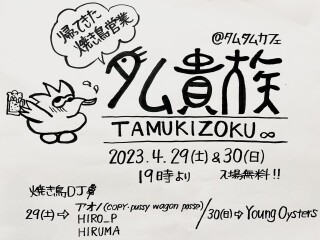 帰ってきた
焼き鳥営業
@タムタムカフェ
ダム貴族
TAMUKIZOKU∞
2023.4.29(土)&30(日)
19時より 入場無料!!
焼き鳥DJ
29(土)⇒ アオノ(COPY-pussy wagon posse)
HIRO_P
HIRUMA
30(日)⇒Young Oysters